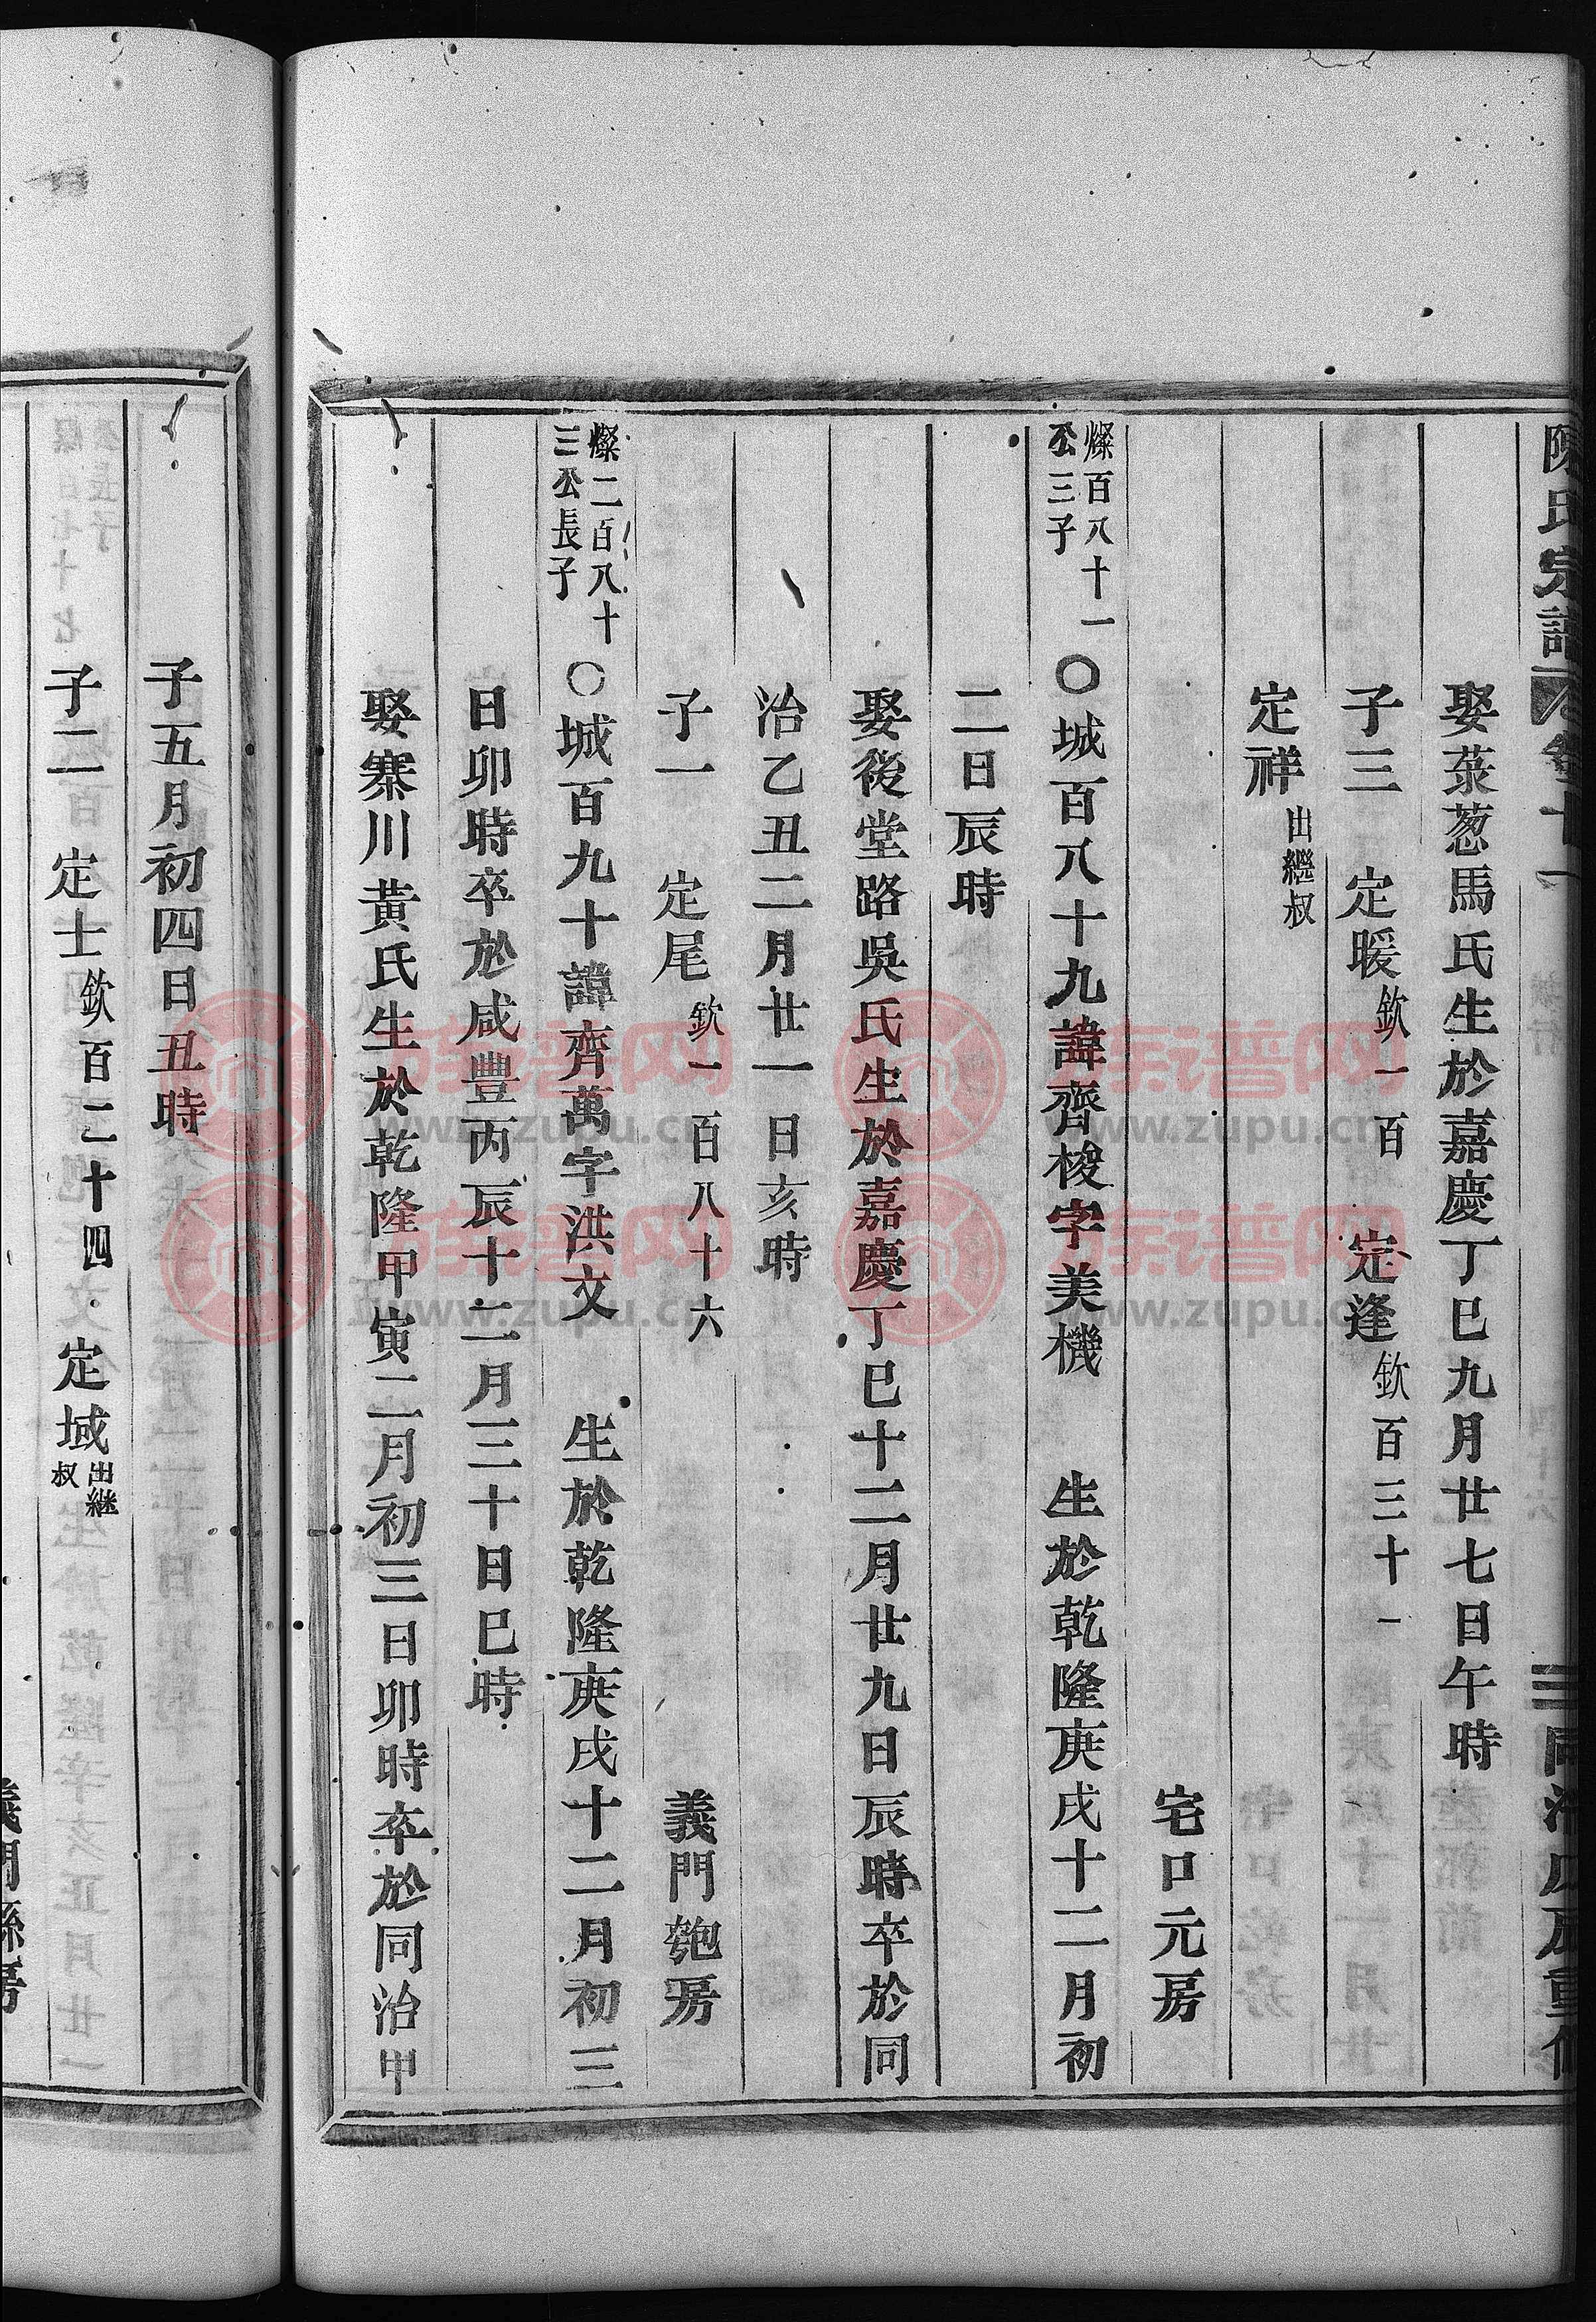 陳氏宗譜 卷十一 同治戊辰重修
娶菉葱馬氏生於嘉慶丁巳九月廿七日午時
子三 定暖 欽一百 定逢 欽百三十一
定祥 出繼叔
宅口元房
燦百八十一公三子 〇城百八十九諱齊梭字美機 生於乾隆庚戌十二月初
二日辰時
娶後堂路吳氏生於嘉慶丁巳十二月廿九日辰時卒於同
治乙丑二月廿一日亥時
子一 定尾 欽一百八十六 義門匏房
燦二百八十三公長子 〇城百九十諱齊萬字洪文 生於乾隆庚戌十二月初三
日卯時卒於咸豐丙辰十二月三十日巳時
娶寨川黃氏生於乾隆甲寅二月初三日卯時卒於同治甲
子五月初四日丑時
子二 定士 欽百二十四 定域 出繼叔
族谱网
www.zupu.cn
族谱网
www.zupu.cn
族谱网
www.zupu.cn
族谱网
www.zupu.cn